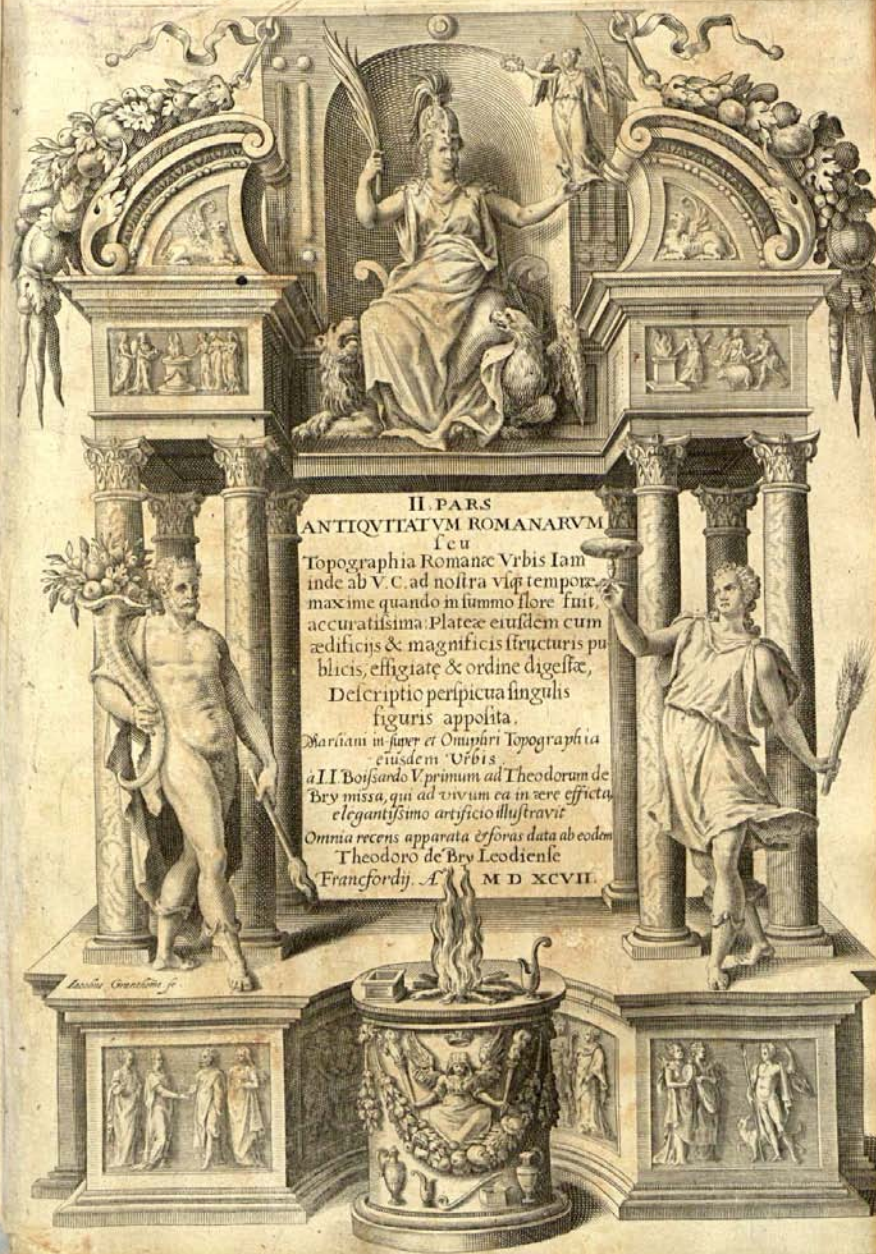 II. PARS
ANTIQVITATVM ROMANARVM
ſeu
Topographia Romanæ Vrbis Iam
inde ab V. C. ad noſtra vſq; tempora,
maxime quando in ſummo flore fuit,
accuratiſſima: Plateæ eiuſdem cum
ædificijs & magnificis ſtructuris pu
blicis, effigiatę & ordine digeſtæ,
Deſcriptio perſpicua ſingulis
figuris appoſita.
Marliani in-ſuper et Onuphri Topographia
eiusdem Vrbis.
à I. I. Boiſsardo V. primum ad Theodorum de
Bry miſsa, qui ad vivum ea in ære efficta,
elegantiſſimo artificio illuſtravit
Omnia recens apparata & foras data ab eodem
Theodoro de Bry Leodienſe
Francfordij. Aº. M D XCVII.
Iacobus Granthome fe.